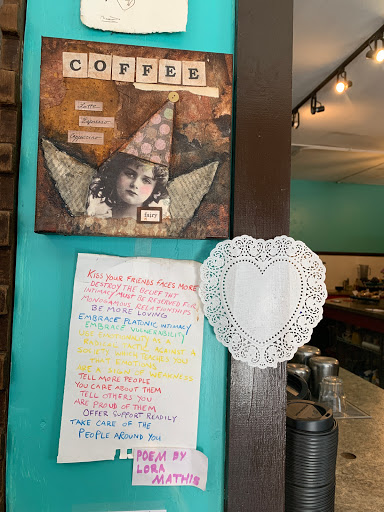 COFFEE
Latte
Espresso
Cappuccino
fairy
KISS YOUR FRIENDS FACES MORE
- DESTROY THE BELIEF THT
INTIMACY MUST BE RESERVED FOR
MONOGAMOUS RELATIONSHIPS
BE MORE LOVING
EMBRACE PLATONIC INTIMACY
EMBRACE VULNERABILITY
USE EMOTIONALITY AS A
RADICAL TACTIC AGAINST A
SOCIETY WHICH TEACHES YOU
THAT EMOTIONS
ARE A SIGN OF WEAKNESS
TELL MORE PEOPLE
YOU CARE ABOUT THEM
TELL OTHERS YOU
ARE PROUD OF THEM
OFFER SUPPORT READILY
TAKE CARE OF THE
PEOPLE AROUND YOU
POEM BY
LORA
MATHIS